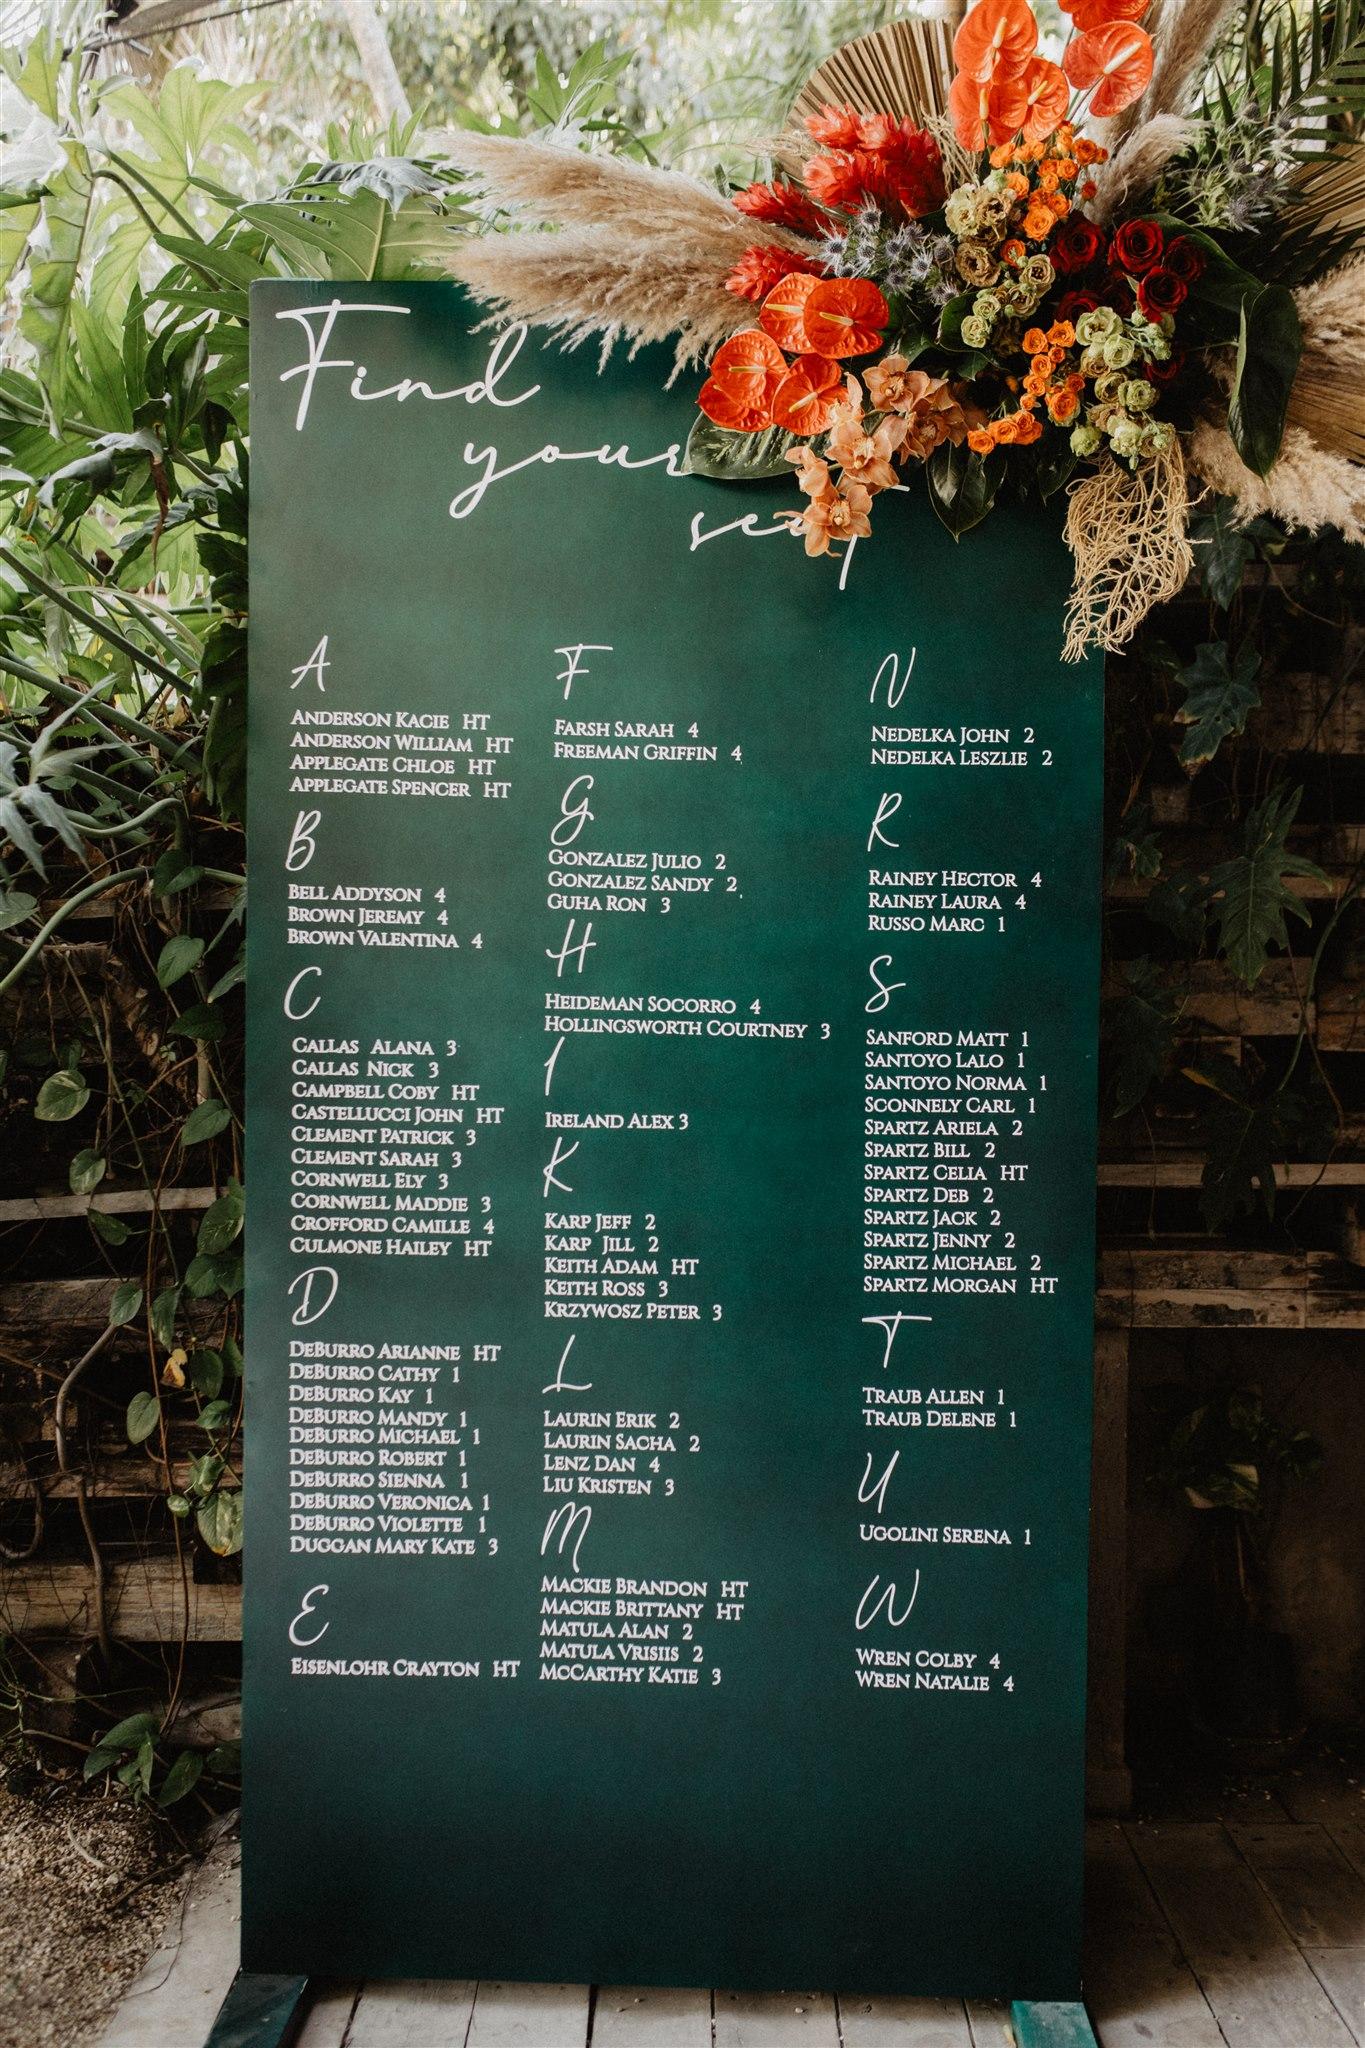 Find
your
seat
A
ANDERSON KACIE HT
ANDERSON WILLIAM HT
APPLEGATE CHLOE HT
APPLEGATE SPENCER HT
B
BELL ADDYSON 4
BROWN JEREMY 4
BROWN VALENTINA 4
C
CALLAS ALANA 3
CALLAS NICK 3
CAMPBELL COBY HT
CASTELLUCCI JOHN HT
CLEMENT PATRICK 3
CLEMENT SARAH 3
CORNWELL ELY 3
CORNWELL MADDIE 3
CROFFORD CAMILLE 4
CULMONE HAILEY HT
D
DEBURRO ARIANNE HT
DEBURRO CATHY 1
DEBURRO KAY 1
DEBURRO MANDY 1
DEBURRO MICHAEL 1
DEBURRO ROBERT 1
DEBURRO SIENNA 1
DEBURRO VERONICA 1
DEBURRO VIOLETTE 1
DUGGAN MARY KATE 3
E
EISENLOHR CRAYTON HT
F
FARSH SARAH 4
FREEMAN GRIFFIN 4
G
GONZALEZ JULIO 2
GONZALEZ SANDY 2
GUHA RON 3
H
HEIDEMAN SOCORRO 4
HOLLINGSWORTH COURTNEY 3
I
IRELAND ALEX 3
K
KARP JEFF 2
KARP JILL 2
KEITH ADAM HT
KEITH ROSS 3
KRZYWOSZ PETER 3
L
LAURIN ERIK 2
LAURIN SACHA 2
LENZ DAN 4
LIU KRISTEN 3
M
MACKIE BRANDON HT
MACKIE BRITTANY HT
MATULA ALAN 2
MATULA VRISIIS 2
MCCARTHY KATIE 3
N
NEDELKA JOHN 2
NEDELKA LESZLIE 2
R
RAINEY HECTOR 4
RAINEY LAURA 4
RUSSO MARC 1
S
SANFORD MATT 1
SANTOYO LALO 1
SANTOYO NORMA 1
SCONNELY CARL 1
SPARTZ ARIELA 2
SPARTZ BILL 2
SPARTZ CELIA HT
SPARTZ DEB 2
SPARTZ JACK 2
SPARTZ JENNY 2
SPARTZ MICHAEL 2
SPARTZ MORGAN HT
T
TRAUB ALLEN 1
TRAUB DELENE 1
U
UGOLINI SERENA 1
W
WREN COLBY 4
WREN NATALIE 4